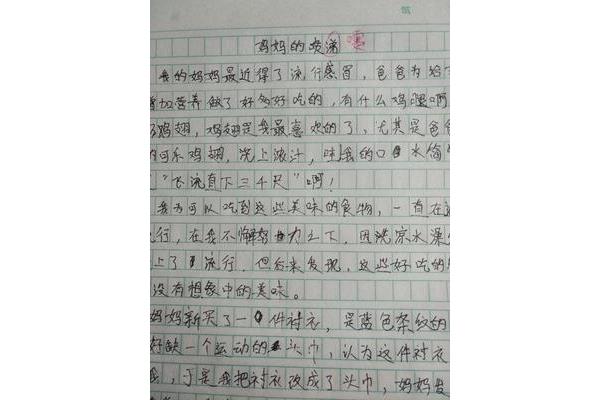 妈妈的喷满嚏
我的妈妈最近得了流行感冒，爸爸为给
加营养做了好多好吃的，有什么鸡腿啊
鸡翅，鸡翅是我最喜欢的了，尤其是爸爸
可乐鸡翅，浇上浓汁，哇我的口水
"飞流直下三千尺"啊！
我为可以吃到这些美味的食物，一直在
行，在我不懈努力之下，因洗凉水澡
上了流行，但后来发现，这些好吃的
没有想象中的美味。
妈妈新买了一件衬衣，是蓝色条纹的
好缺一个运动的头巾，认为这件衬衣
我，于是我把衬衣改成了头巾，妈妈发